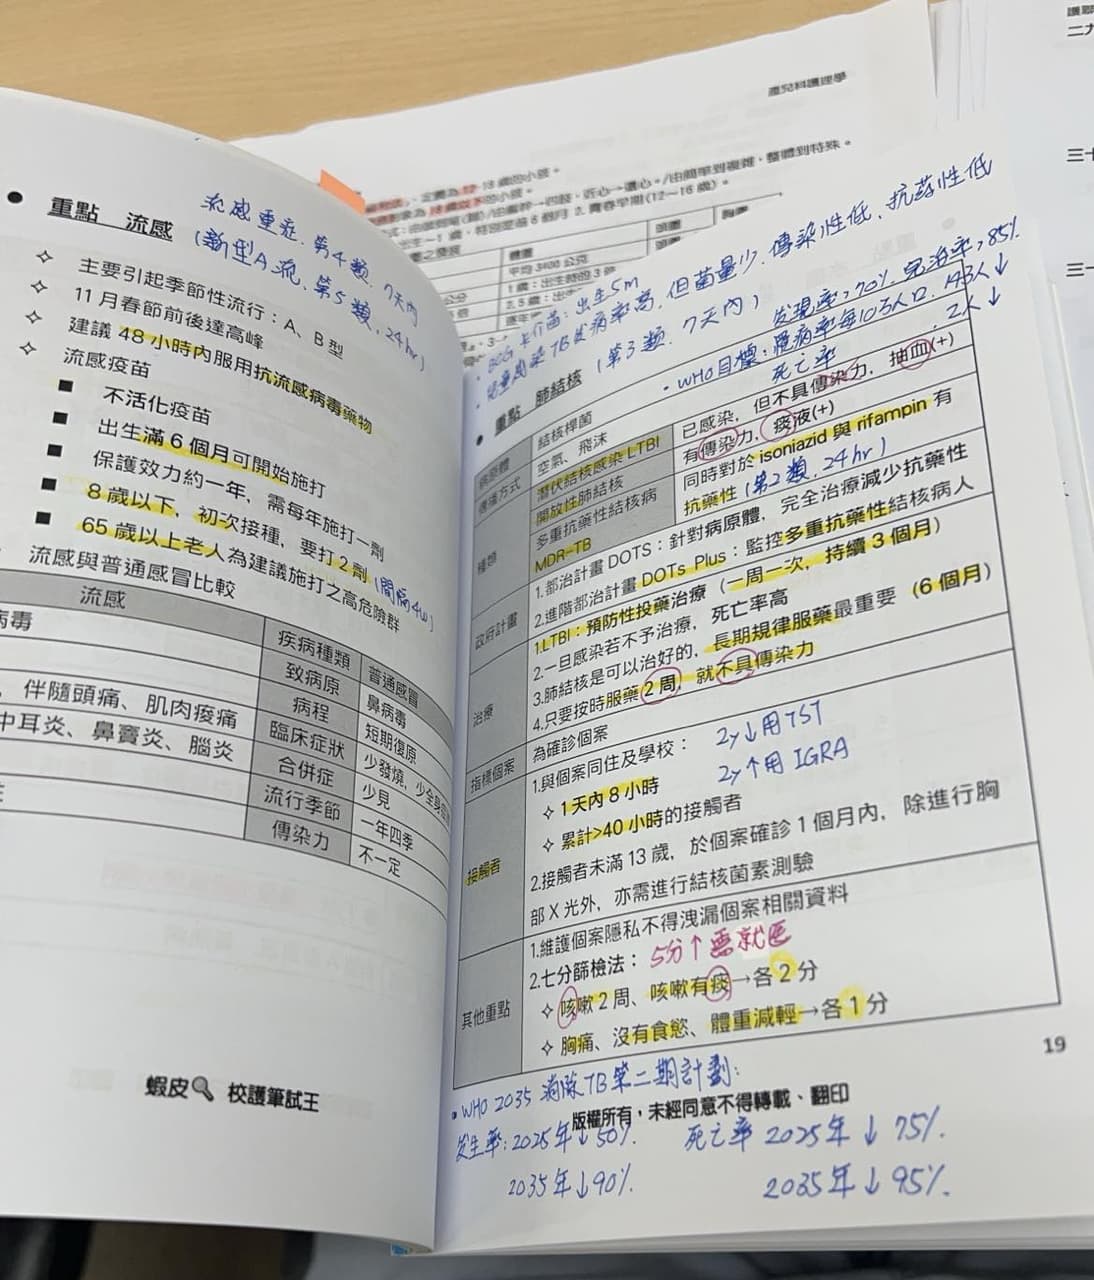 流感重症:第4類.7天內
(新型A流,第5類,24hr)
● 重點 流感
✧ 主要引起季節性流行:A、B型
✧ 11月春節前後達高峰
✧ 建議48小時內服用抗流感病毒藥物
✧ 流感疫苗
■ 不活化疫苗
■ 出生滿6個月可開始施打
■ 保護效力約一年,需每年施打一劑
■ 8歲以下,初次接種,要打2劑(間隔4w)
■ 65歲以上老人為建議施打之高危險群
流感與普通感冒比較
流感 疾病種類 普通感冒
病毒 致病原 鼻病毒
病程 短期復原
、伴隨頭痛、肌肉痠痛 臨床症狀 少發燒,少全身
中耳炎、鼻竇炎、腦炎 合併症 少見
流行季節 一年四季
傳染力 不一定
蝦皮 校護筆試王
產兒科護理學
BCG卡介苗:出生5m
兒童感染TB發病率高.但菌量少.傳染性低、抗药性低
● 重點 肺結核 (第3類.7天內)
發現率>70% 完治率>85%
• WHO目標:
死亡率 2人↓
病原體 結核桿菌
傳播方式 空氣、飛沫
種類 潛伏結核感染 LTBI 已感染,但不具傳染力,抽血(+)
開放性肺結核 有傳染力,痰液(+)
多重抗藥性結核病 MDR-TB 同時對於 isoniazid 與 rifampin 有
抗藥性(第2類.24hr)
政府計畫 1.都治計畫 DOTS:針對病原體,完全治療減少抗藥性
2.進階都治計畫 DOTs Plus:監控多重抗藥性結核病人
治療 1.LTBI:預防性投藥治療(一周一次,持續3個月)
2.一旦感染若不予治療,死亡率高
3.肺結核是可以治好的,長期規律服藥最重要(6個月)
4.只要按時服藥2周,就不具傳染力
指標個案 為確診個案
接觸者 1.與個案同住及學校:
2y↓用TST
✧ 1天內8小時
2y↑用IGRA
✧ 累計>40小時的接觸者
2.接觸者未滿13歲,於個案確診1個月內,除進行胸
部X光外,亦需進行結核菌素測驗
其他重點 1.維護個案隱私不得洩漏個案相關資料
2.七分篩檢法: 5分↑需就医
✧ 咳嗽2周、咳嗽有痰→各2分
✧ 胸痛、沒有食慾、體重減輕→各1分
19
• WHO 2035 消除TB第二期計劃:
版權所有,未經同意不得轉載、翻印
发生率:2025年↓50%. 死亡率 2025年↓75%.
2035年↓90%. 2035年↓95%.